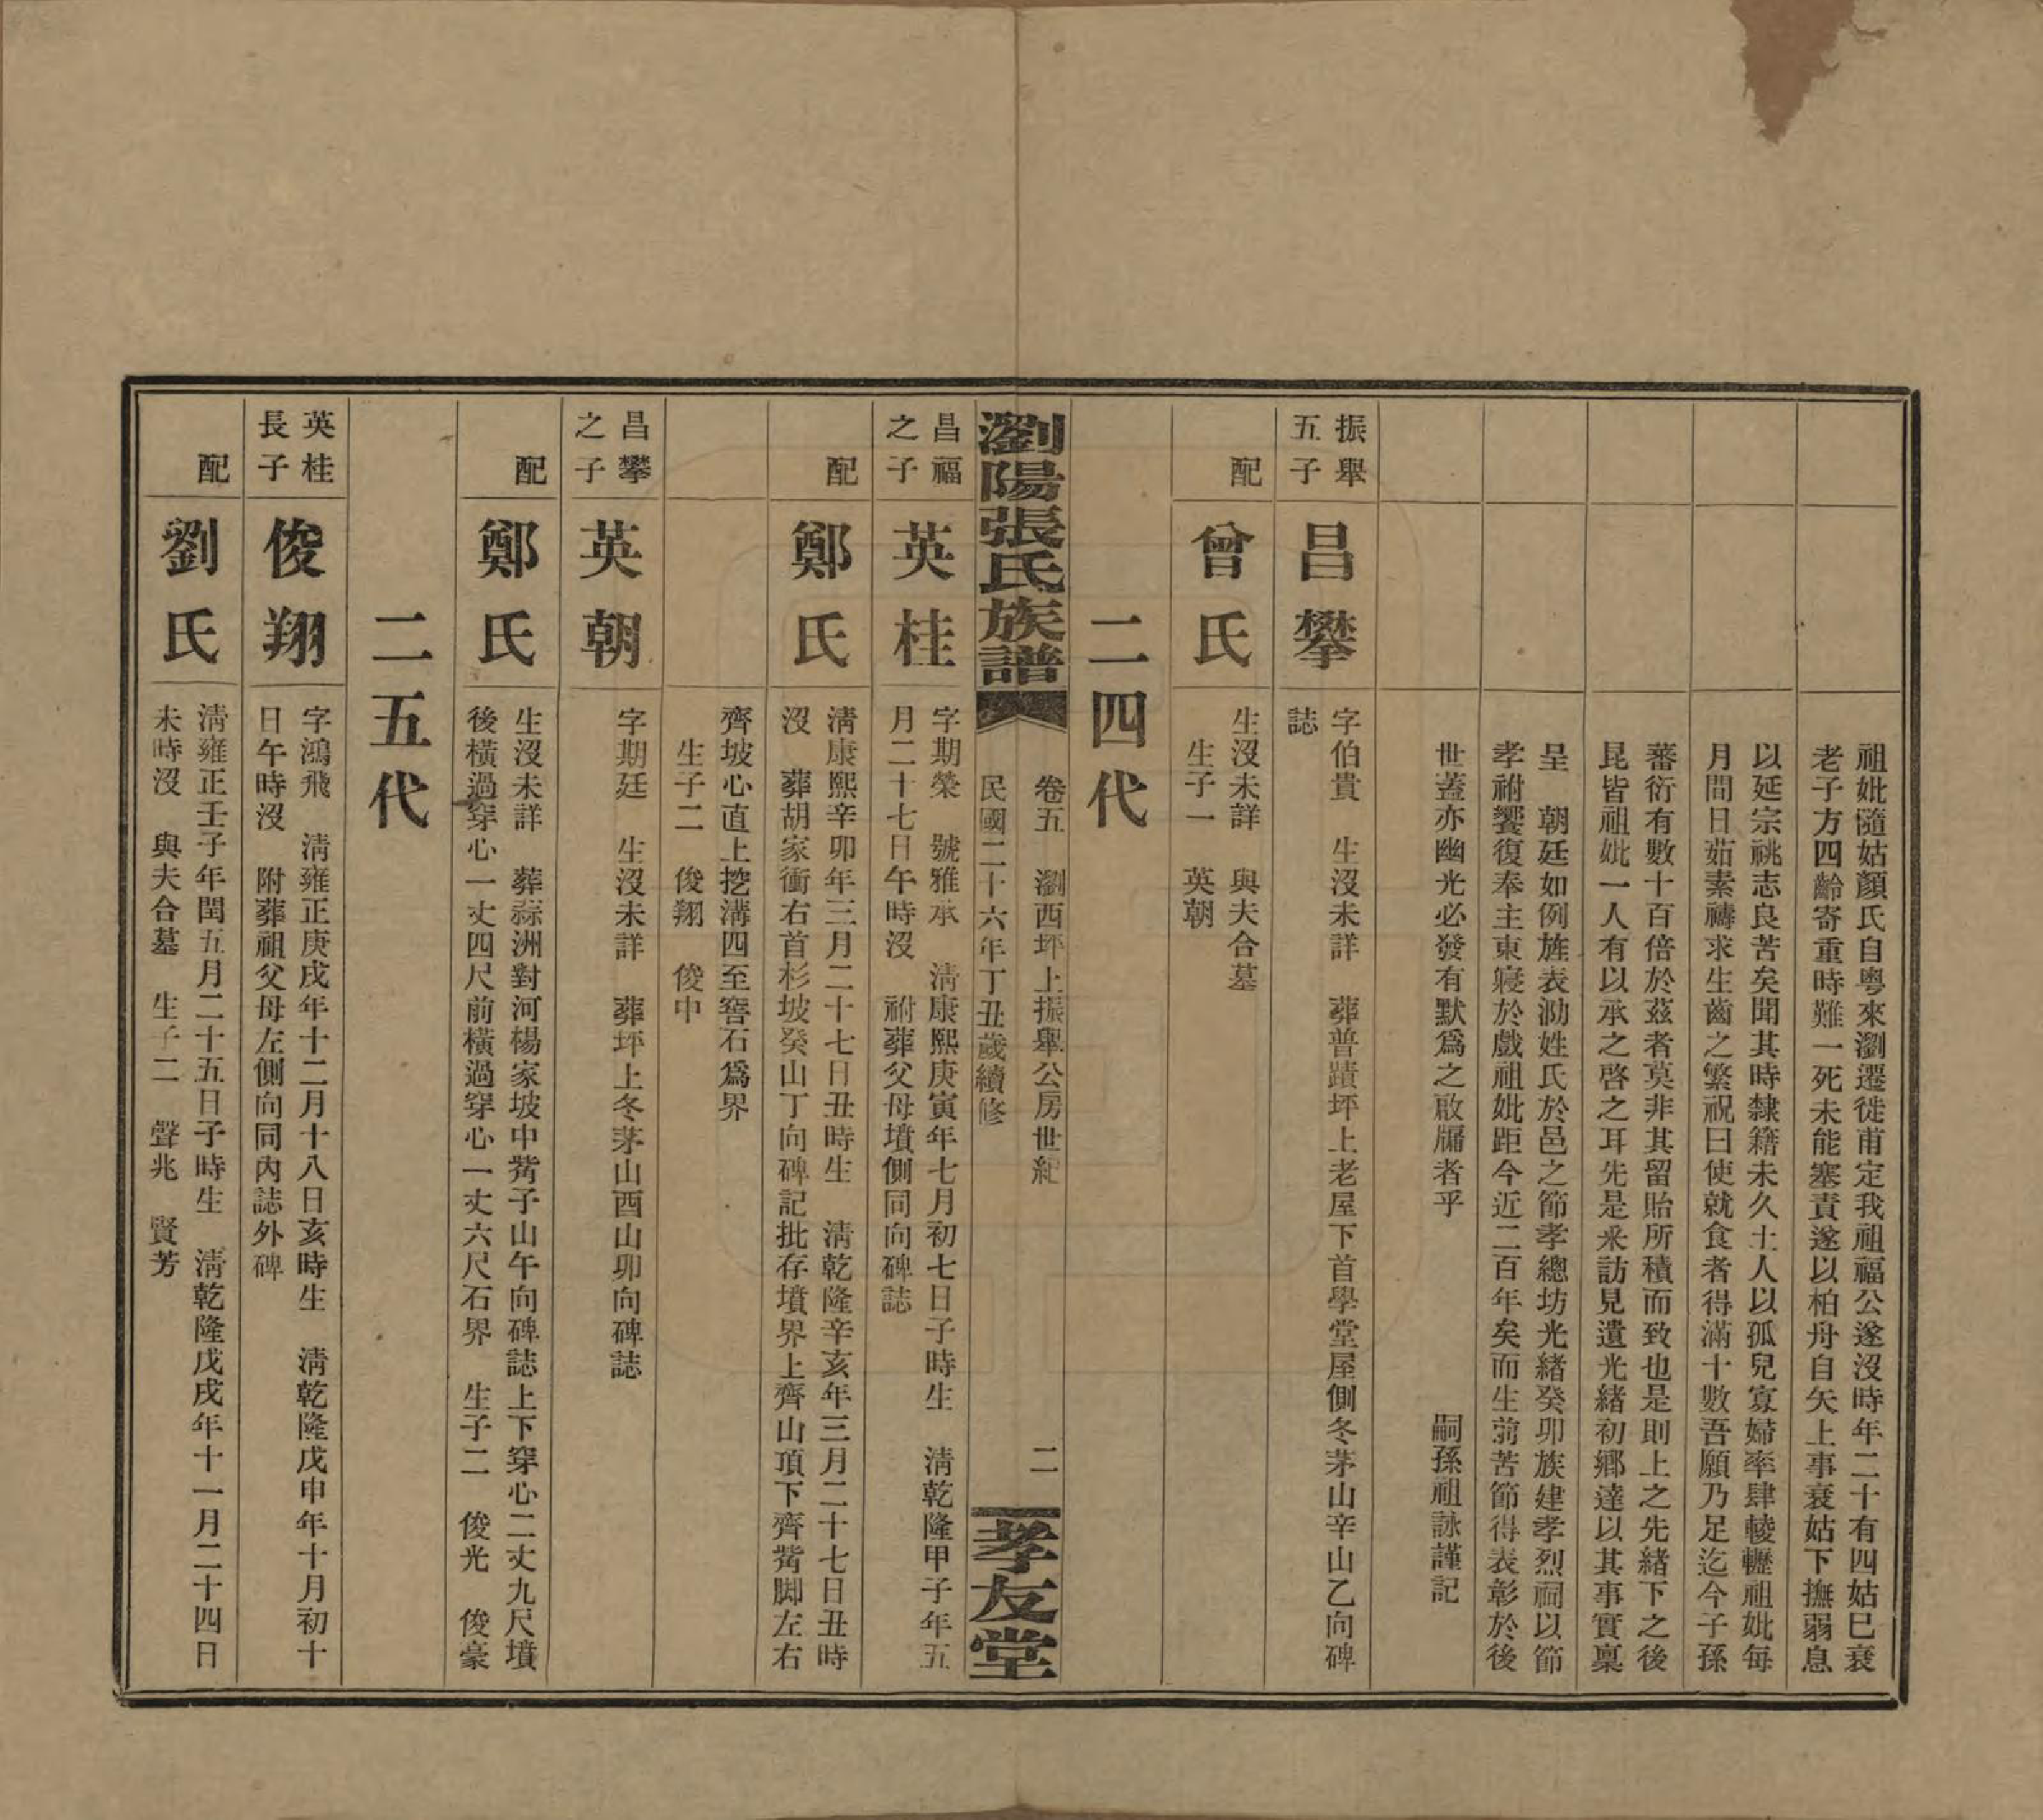 祖妣隨姑顏氏自粵來瀏遷徙甫定我祖福公遂沒時年二十有四姑巳衰
老子方四齡寄重時難一死未能塞責遂以柏舟自矢上事衰姑下撫弱息
以延宗祧志良苦矣聞其時隸籍未久土人以孤兒寡婦率肆轅轢祖妣每
月間日茹素禱求生齒之繁祝曰使就食者得滿十數吾願乃足迄今子孫
蕃衍有數十百倍於茲者莫非其留貽所積而致也是則上之先緒下之後
昆皆祖妣一人有以承之啓之耳先是采訪見遺光緒初鄉達以其事實稟
呈　朝廷如例旌表泐姓氏於邑之節孝總坊光緒癸卯族建孝烈祠以節
孝祔饗復奉主東寢於戲祖妣距今近二百年矣而生前苦節得表彰於後
世蓋亦幽光必發有默爲之啟牖者乎　嗣孫祖詠謹記
振舉
五子
昌攀
字伯貴　生沒未詳　葬普蹟坪上老屋下首學堂屋側冬茅山辛山乙向碑
誌
配
曾氏
生沒未詳　與夫合墓
生子一　英朝
二四代
瀏陽張氏族譜
卷五　瀏西坪上振舉公房世紀　二
民國二十六年丁丑歲續修
孝友堂
昌福
之子
英桂
字期榮　號雅承　淸康熙庚寅年七月初七日子時生　淸乾隆甲子年五
月二十七日午時沒　祔葬父母墳側同向碑誌
配
鄭氏
淸康熙辛卯年三月二十七日丑時生　淸乾隆辛亥年三月二十七日丑時
沒　葬胡家衝右首杉坡癸山丁向碑記批存墳界上齊山頂下齊觜脚左右
齊坡心直上挖溝四至窖石爲界
生子二　俊翔　俊中
昌攀
之子
英朝
字期廷　生沒未詳　葬坪上冬茅山酉山卯向碑誌
配
鄭氏
生沒未詳　葬蒜洲對河楊家坡中觜子山午向碑誌上下穿心二丈九尺墳
後橫過穿心一丈四尺前橫過穿心一丈六尺石界　生子二　俊光　俊豪
二五代
英桂
長子
俊翔
字鴻飛　淸雍正庚戌年十二月十八日亥時生　淸乾隆戊申年十月初十
日午時沒　附葬祖父母左側向同內誌外碑
配
劉氏
淸雍正壬子年閏五月二十五日子時生　淸乾隆戊戌年十一月二十四日
未時沒　與夫合墓　生子二　聲兆　賢芳